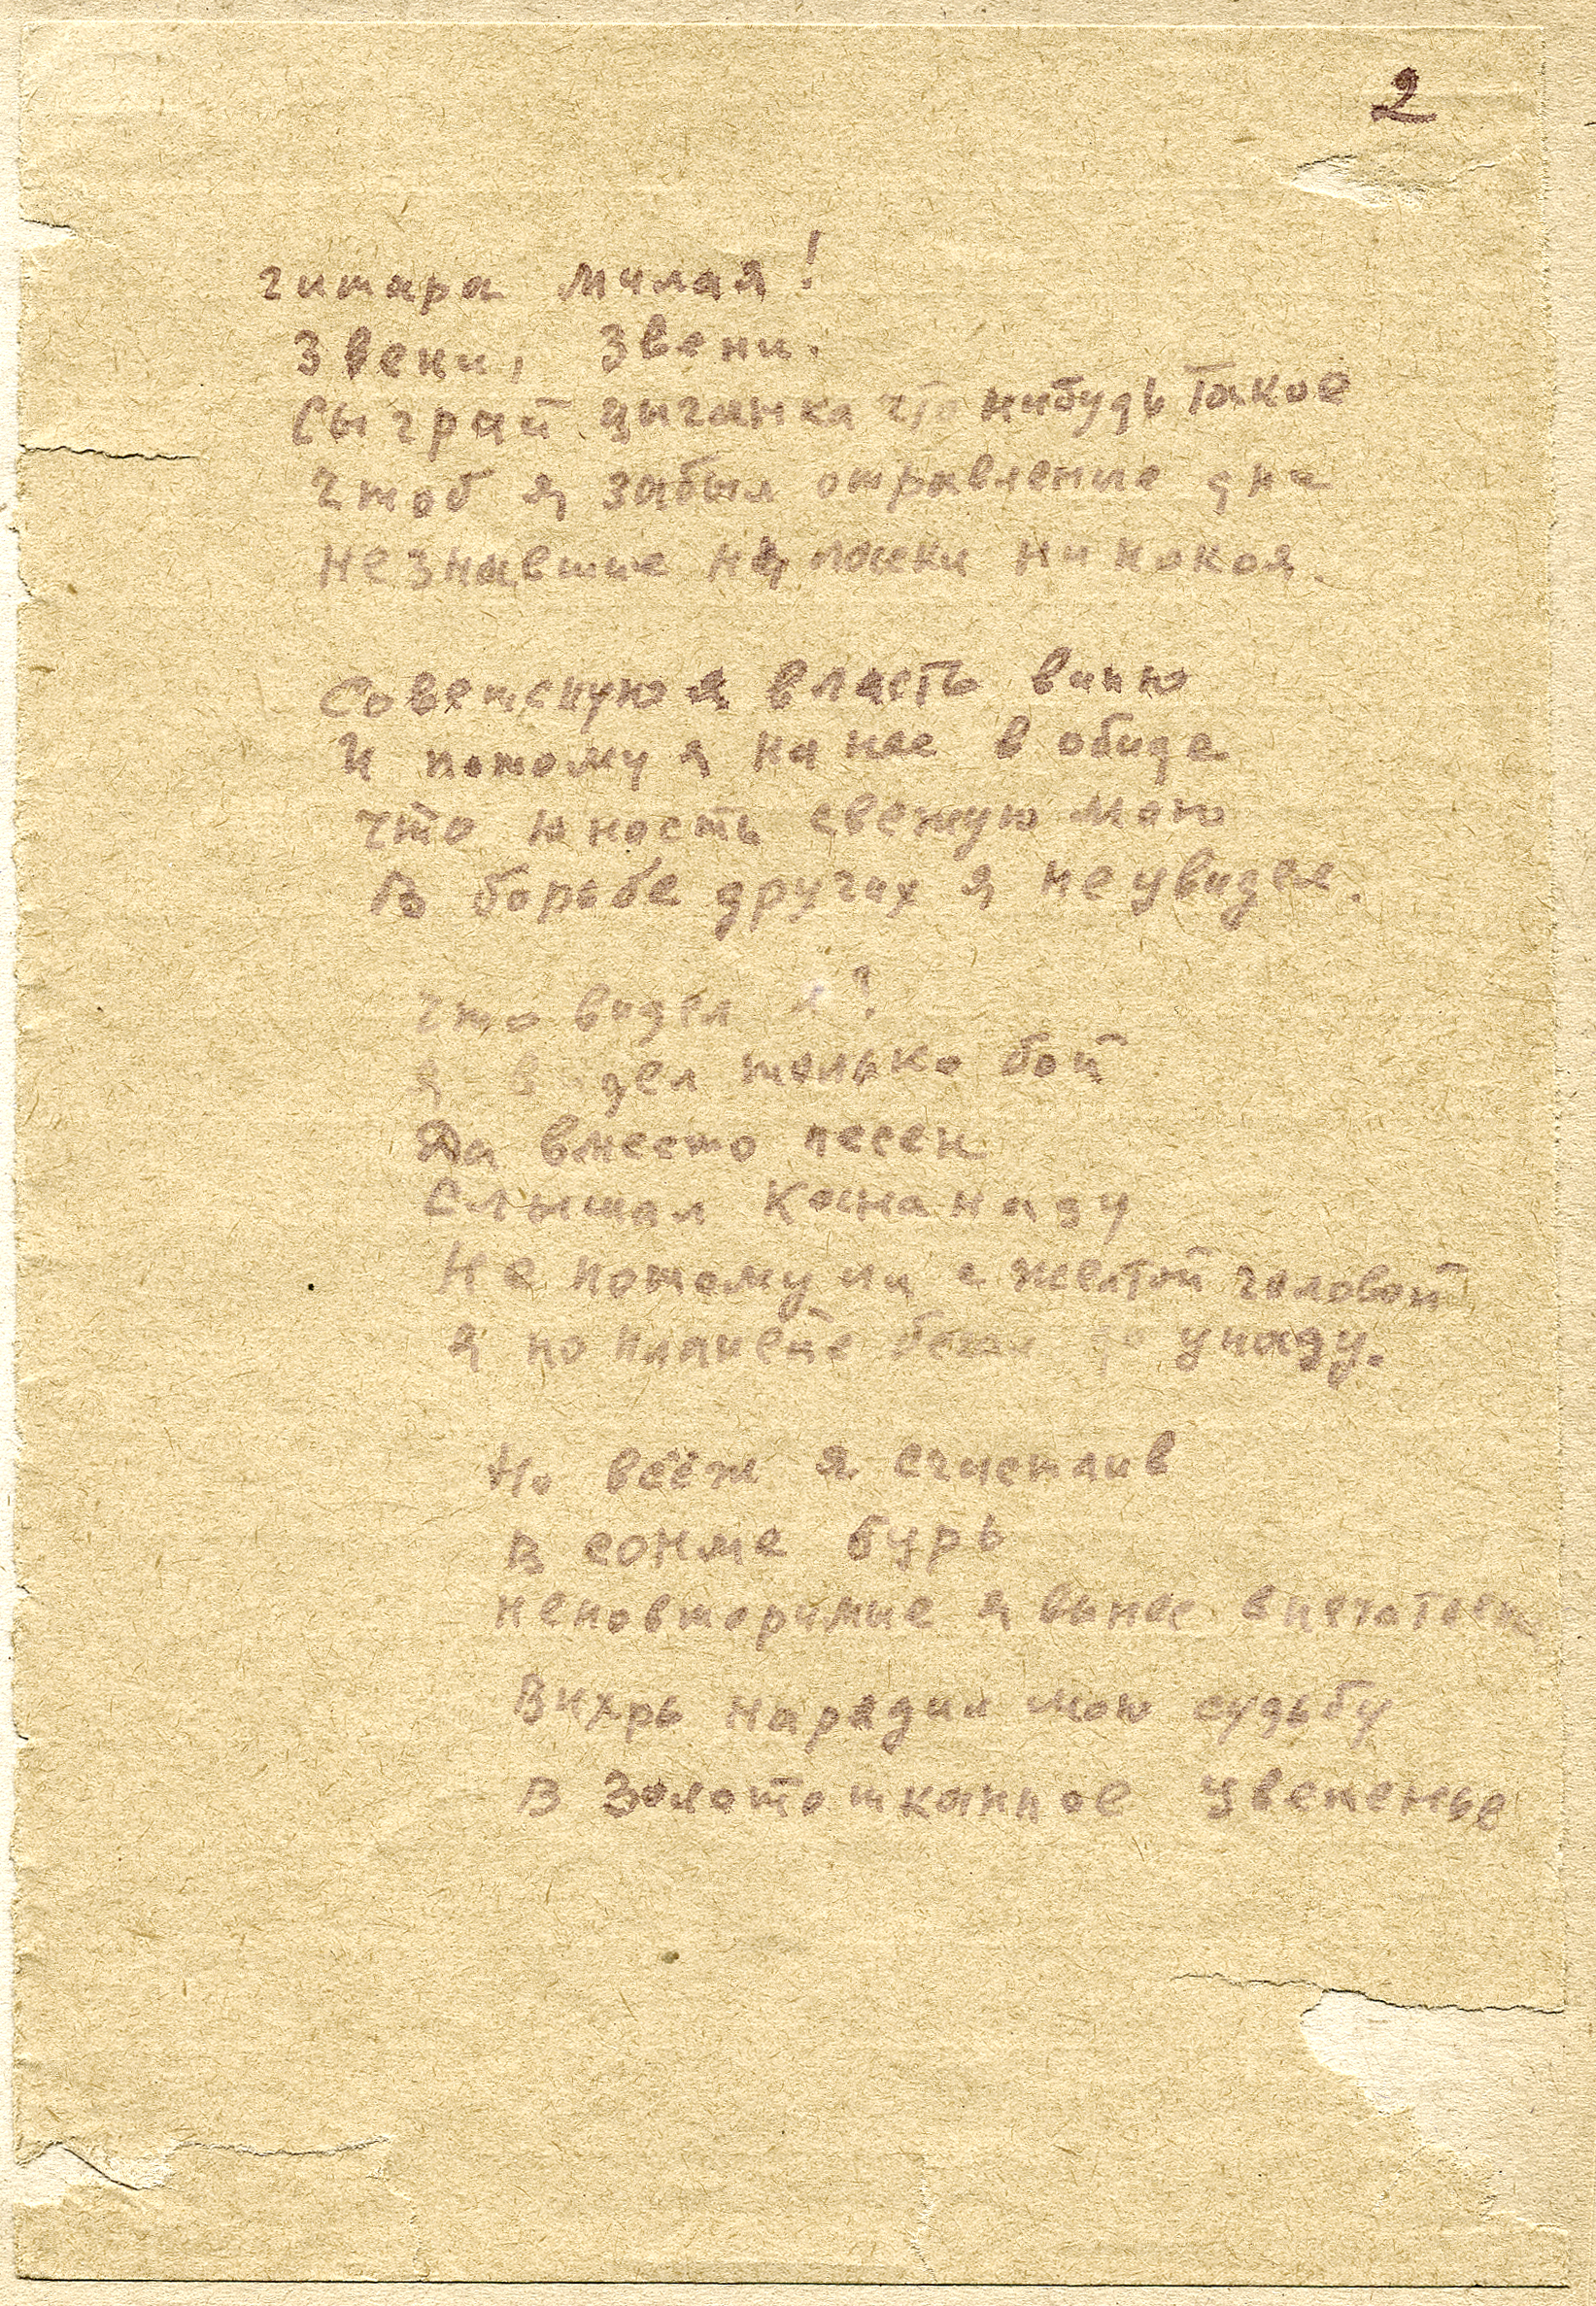 2
гитара милая!
Звени, звени.
Сыграй цыганка что нибудь такое
Чтоб я забыл отравленые дни
Незнавшие ни ласки ни покоя.
Советскую я власть виню
И потому я на нее в обиде
Что юность свежую мою
В борьбе других я не увидел.
Что видел я?
Я видел только бой
Да вместо песен
Слышал канонаду
Не потому ли с желтой головой
Я по планете бегал до упаду.
Но всёж я счастлив
В сонме бурь
Неповторимые я вынес впечатлен
Вихрь нарядил мою судьбу
В золототканное цветенье